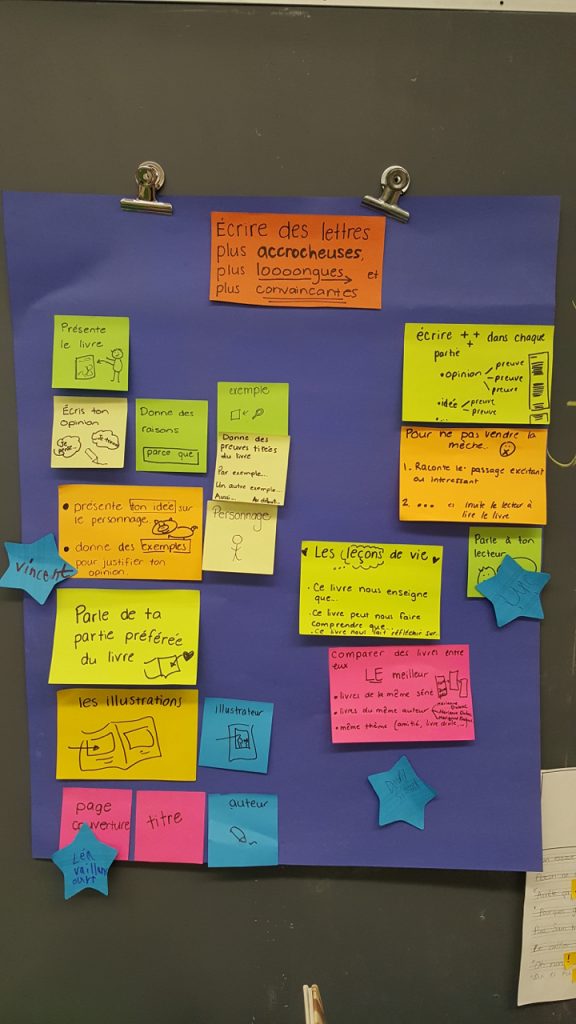 Écrire des lettres
plus accrocheuses,
plus loooongues et
plus convaincantes
Présente
le livre
Écris ton
opinion
Je pense
Je trouve
Donne des
raisons
parce que
exemple
Donne des
preuves tirées
du livre
Par exemple...
Un autre exemple...
Aussi... Au début...
• présente ton idée sur
le personnage.
• donne des exemples
pour justifier ton
opinion.
Personnage
vincent
Parle de ta
partie préférée
du livre
les illustrations
illustrateur
page
couverture
titre
auteur
Léa
vaillan
court
écrire + + + dans chaque
partie
• opinion preuve
preuve
preuve
• idée preuve
preuve
...
Pour ne pas vendre la
mèche...
1. Raconte le passage excitant
ou intéressant
2. ... et invite le lecteur à
lire le livre
Parle à ton
lecteur
Les leçons de vie
• Ce livre nous enseigne
que...
• Ce livre peut nous faire
comprendre que...
• Ce livre nous fait réfléchir sur...
Comparer des livres entre
eux
LE meilleur
• livres de la même série
• livres du même auteur
• même thème (amitié, livre drôle,...)